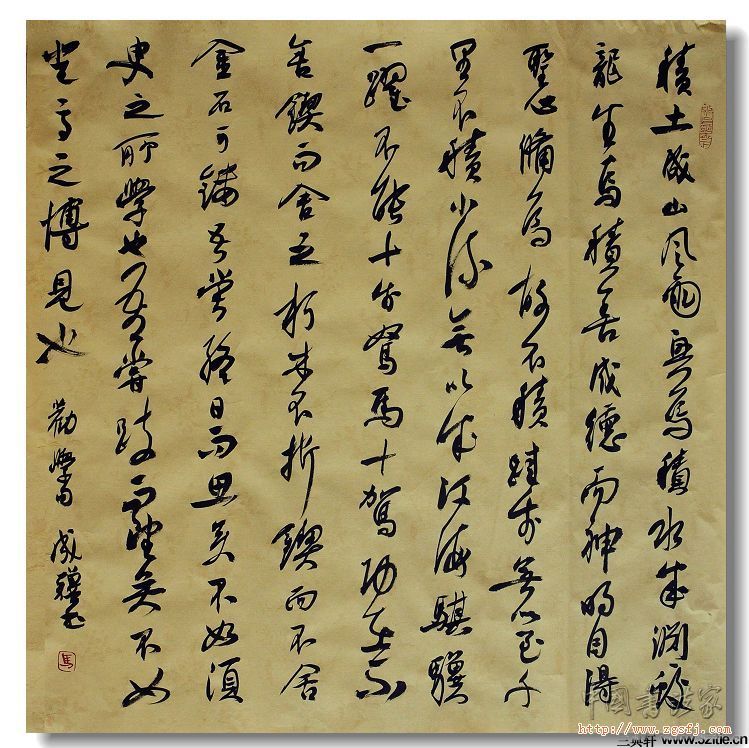 積土成山风雨興焉積水成淵蛟
龍生焉積善成德而神明自得
聖心備焉故不積跬步無以至千
里不積小流無以成江海騏驥
一躍不能十步駑馬十駕功在不
舍鍥而舍之朽木不折鍥而不舍
金石可鏤吾嘗終日而思矣不如須
臾之所學也吾嘗跂而望矣不如
登高之博見也 勸學 成 書
馬
中國書法家
http://www.zgsfj.com
三典轩 www.32tie.cn